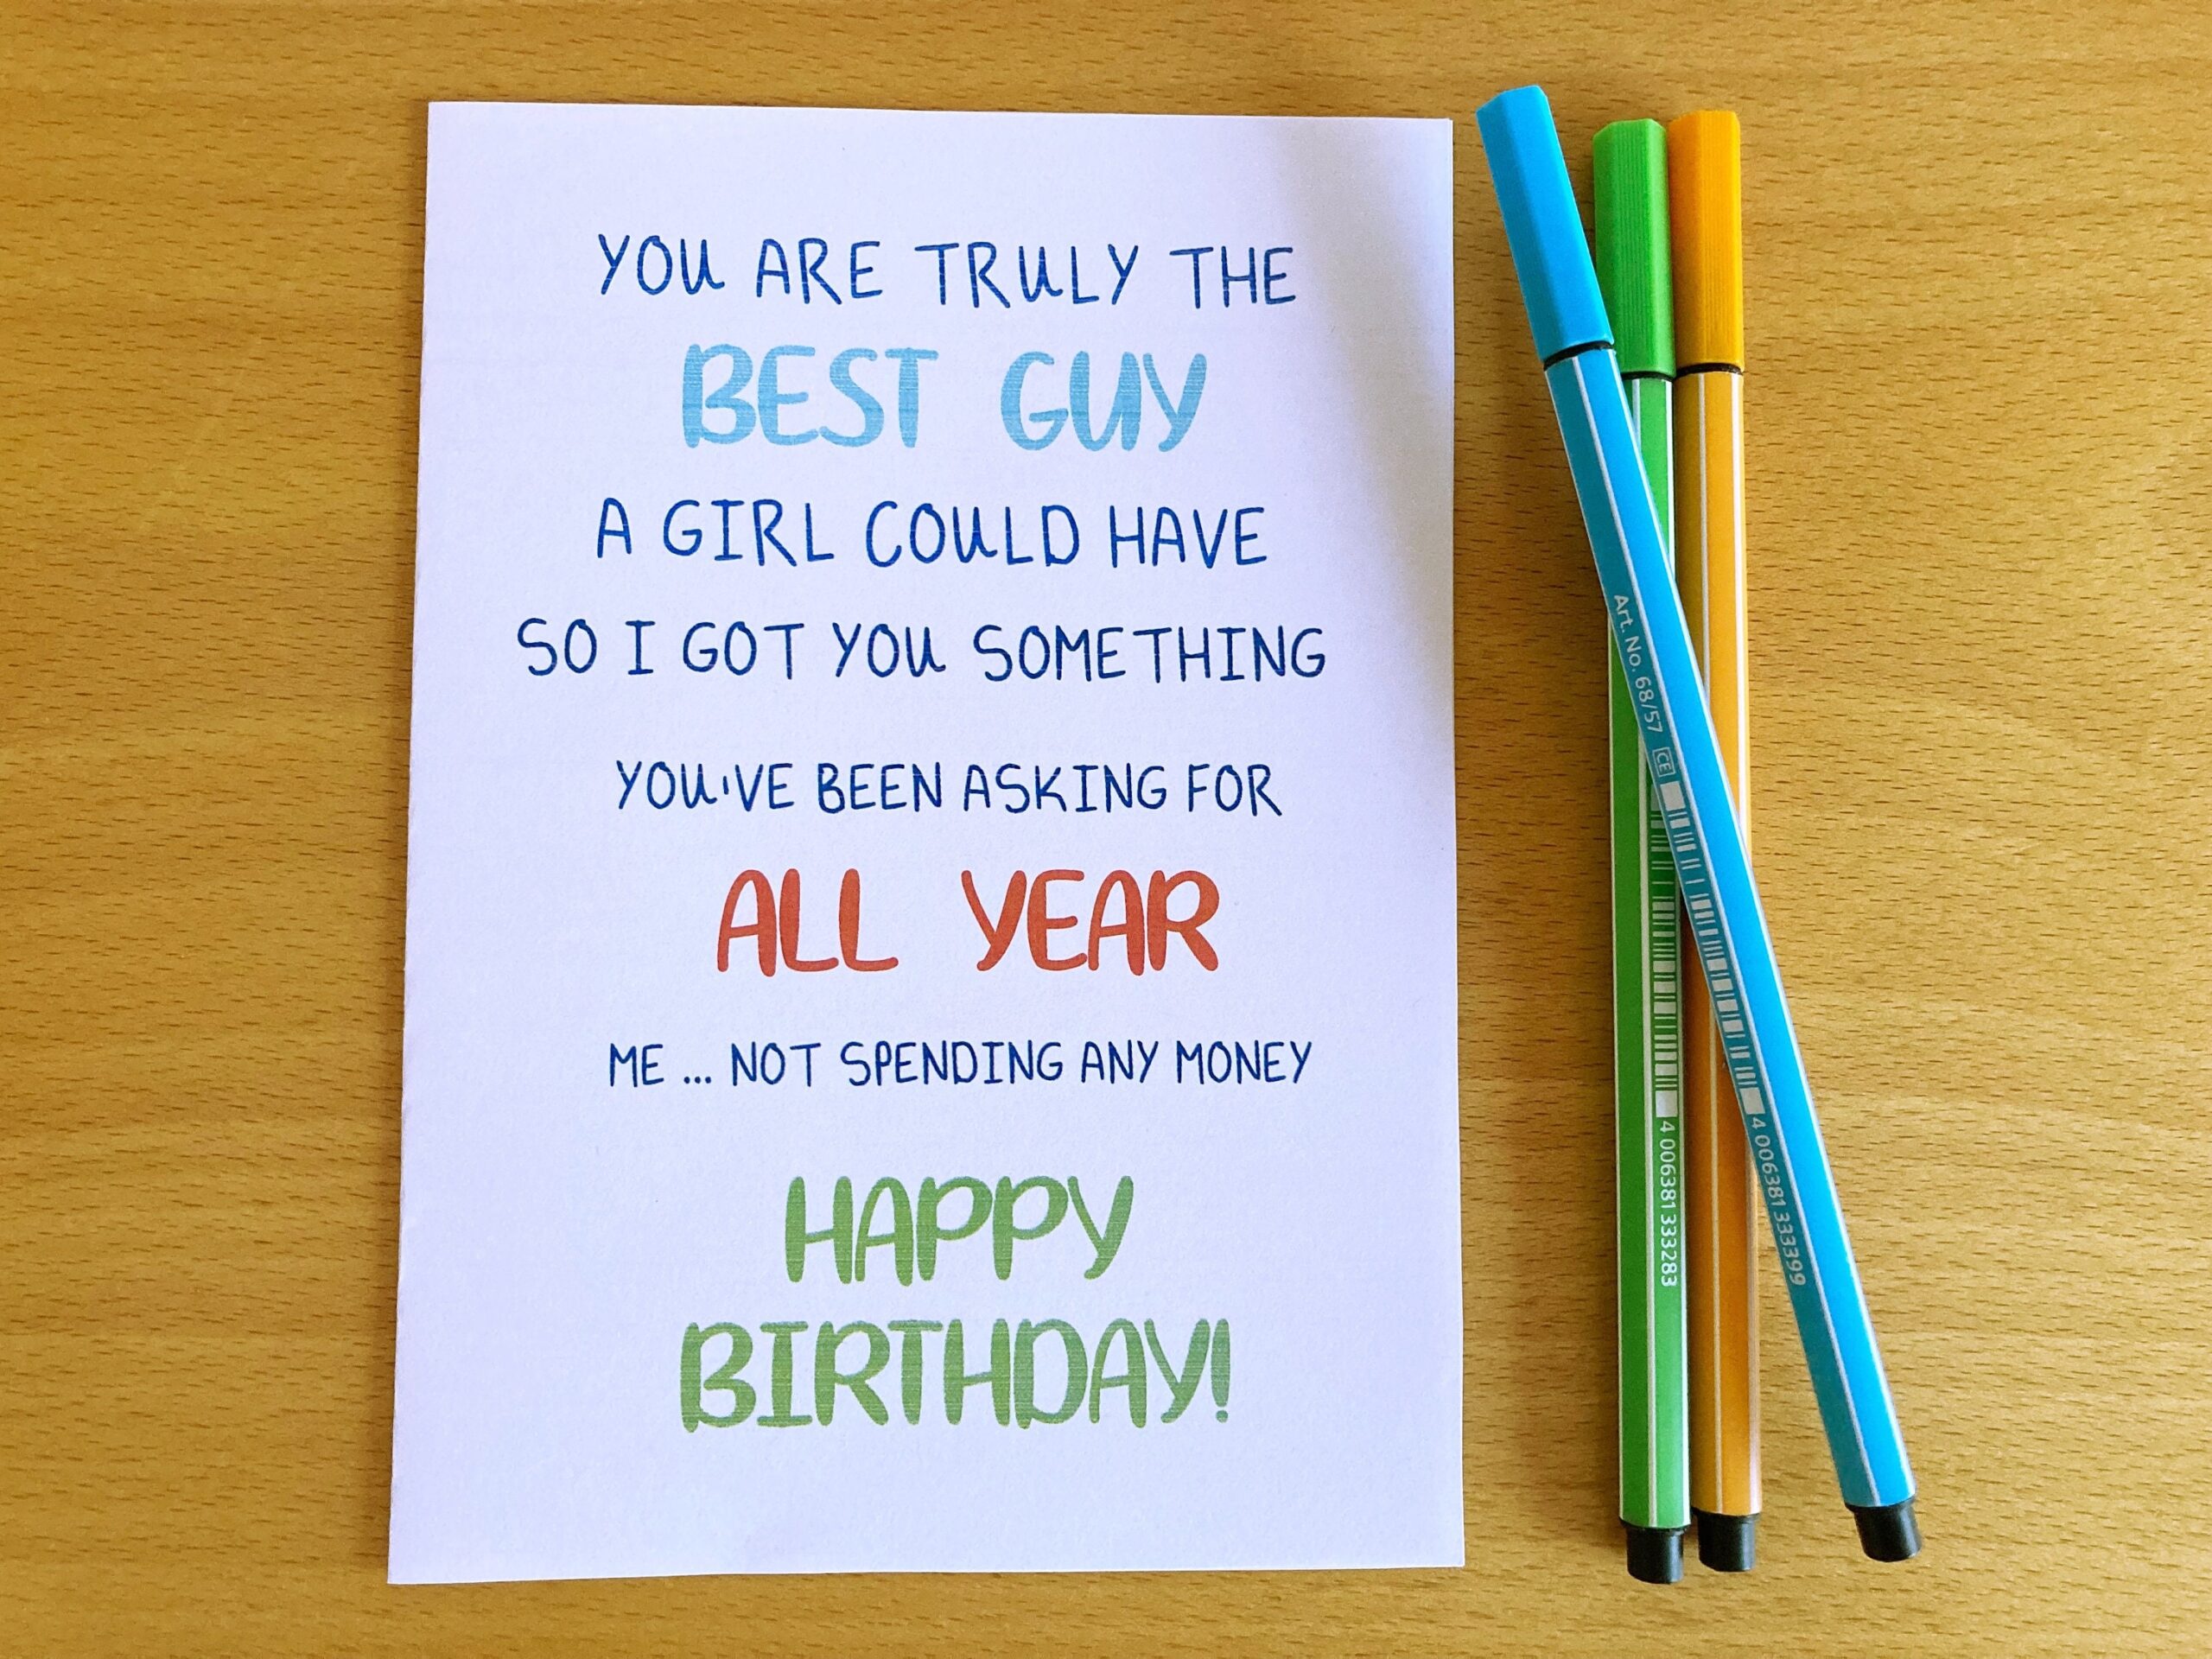 YOU ARE TRULY THE
BEST GUY
A GIRL COULD HAVE
SO I GOT YOU SOMETHING
YOU'VE BEEN ASKING FOR
ALL YEAR
ME ... NOT SPENDING ANY MONEY
HAPPY
BIRTHDAY!
Art. No. 68/57 CE
4 006381 333399
4 006381 333283